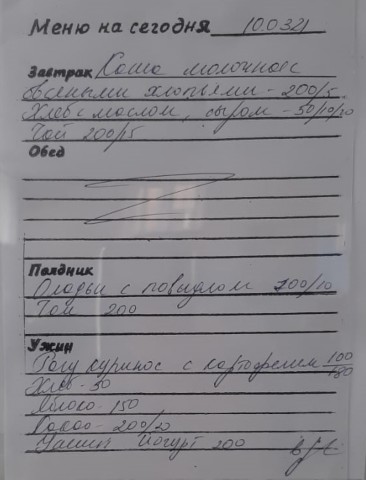 Меню на сегодня 10.03.21
Завтрак Каша молочная с
овсяными хлопьями - 200/5
Хлеб с маслом, сыром - 50/10/20
Чай 200/15
Обед
Полдник
Оладьи с повидлом 100/10
Чай 200
Ужин
Рагу куриное с картофелем 100/180
Хлеб - 50
Яблоко - 150
Какао - 200/20
йогурт 200